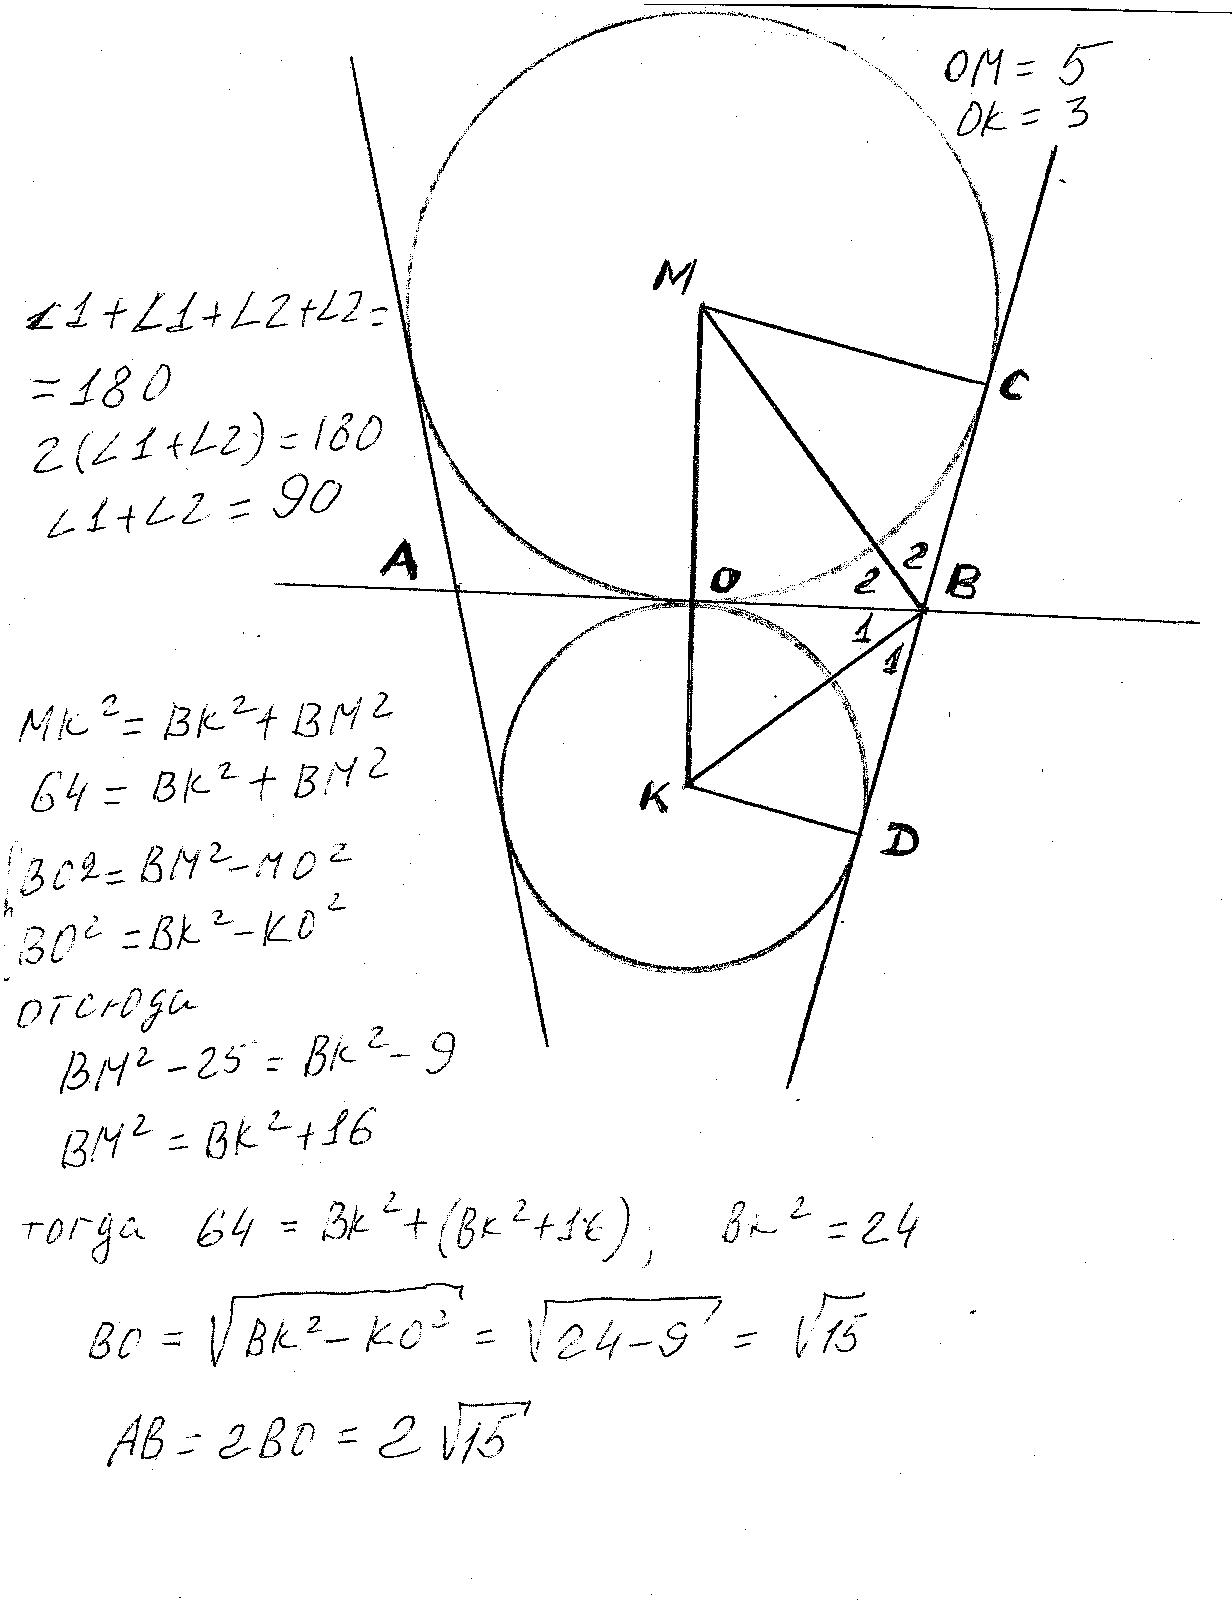 OM = 5
OK = 3
M
∠1+∠1+∠2+∠2=
=180
C
2(∠1+∠2)=180
∠1+∠2=90
A
O
2
2
B
1
1
MK²=BK²+BM²
64=BK²+BM²
K
D
BO²=BM²-MO²
BO²=BK²-KO²
отсюда
BM²-25=BK²-9
BM²=BK²+16
тогда 64=BK²+(BK²+16); BK²=24
BO=√BK²-KO²=√24-9=√15
AB=2BO=2√15